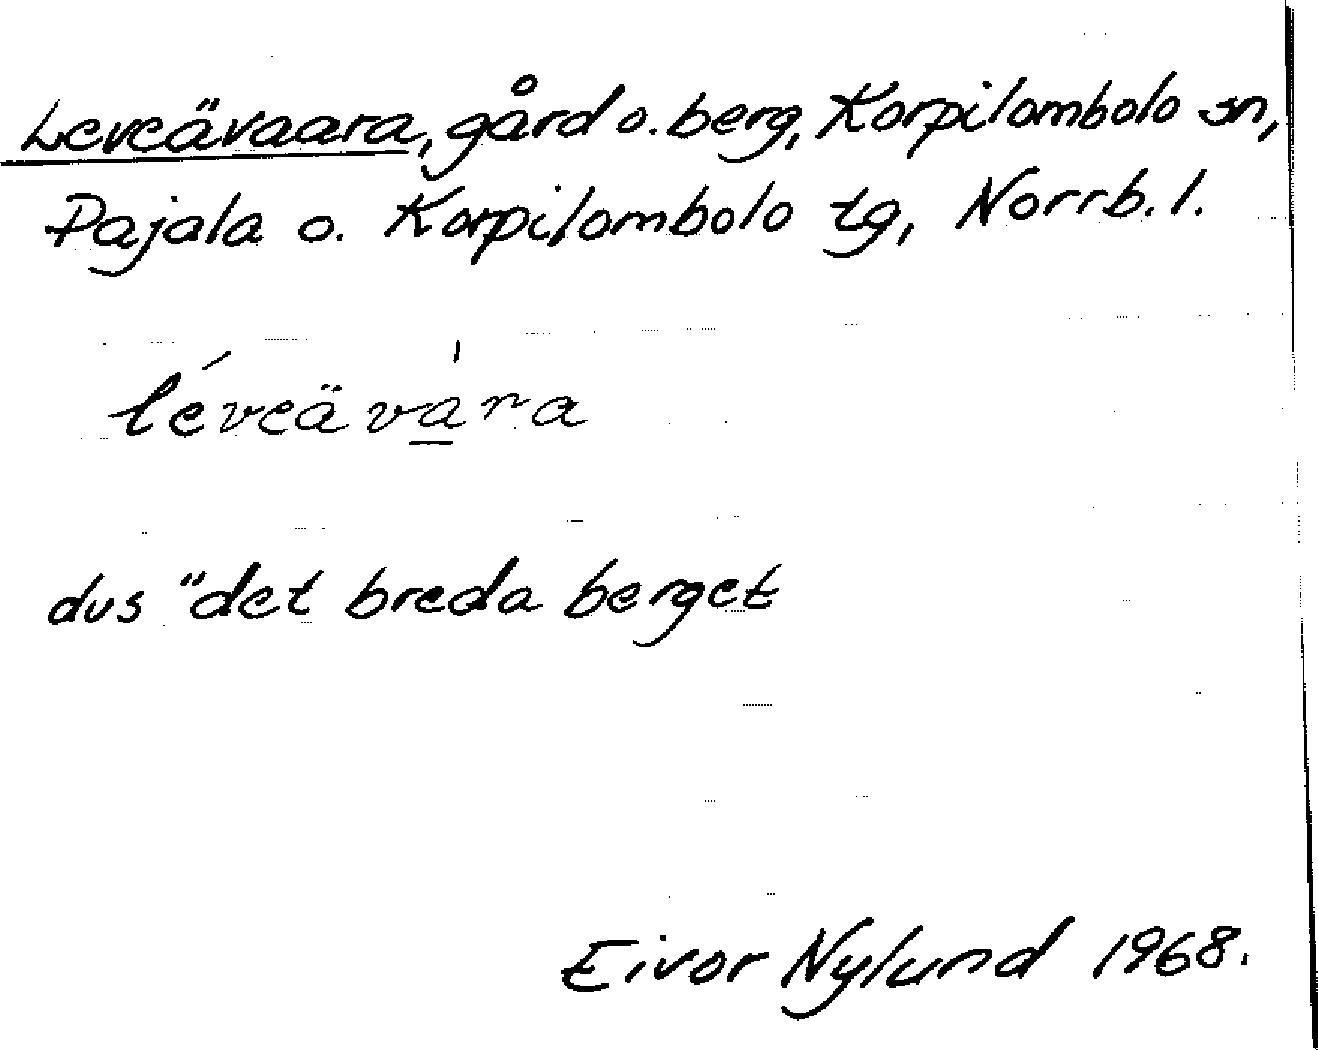 Leveävaara, gård o. berg, Korpilombolo sn,
Pajala o. Korpilombolo tg, Norrb. l.
léveäva̲̍ra
dvs "det breda berget
Eivor Nylund 1968.